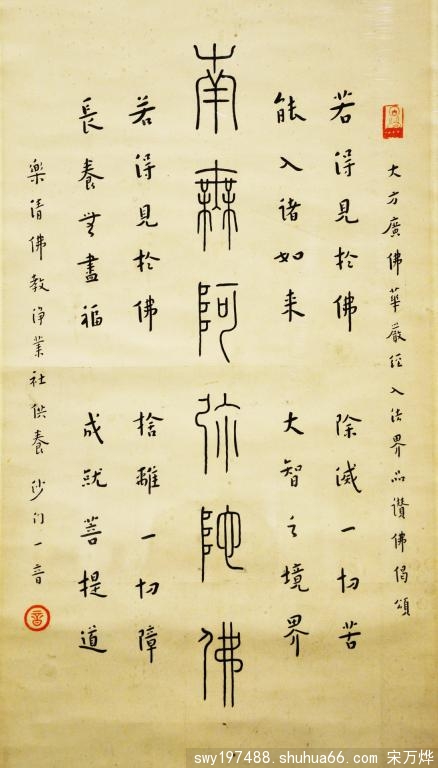 大方廣佛華嚴經入法界品讚佛偈頌
若得見於佛 除滅一切苦
能入諸如来 大智之境界
南無阿弥陀佛
若得見於佛 捨離一切障
長養無盡福 成就菩提道
樂清佛教淨業社供養 沙门一音
音
swy197488.shuhua66.com 宋万烨